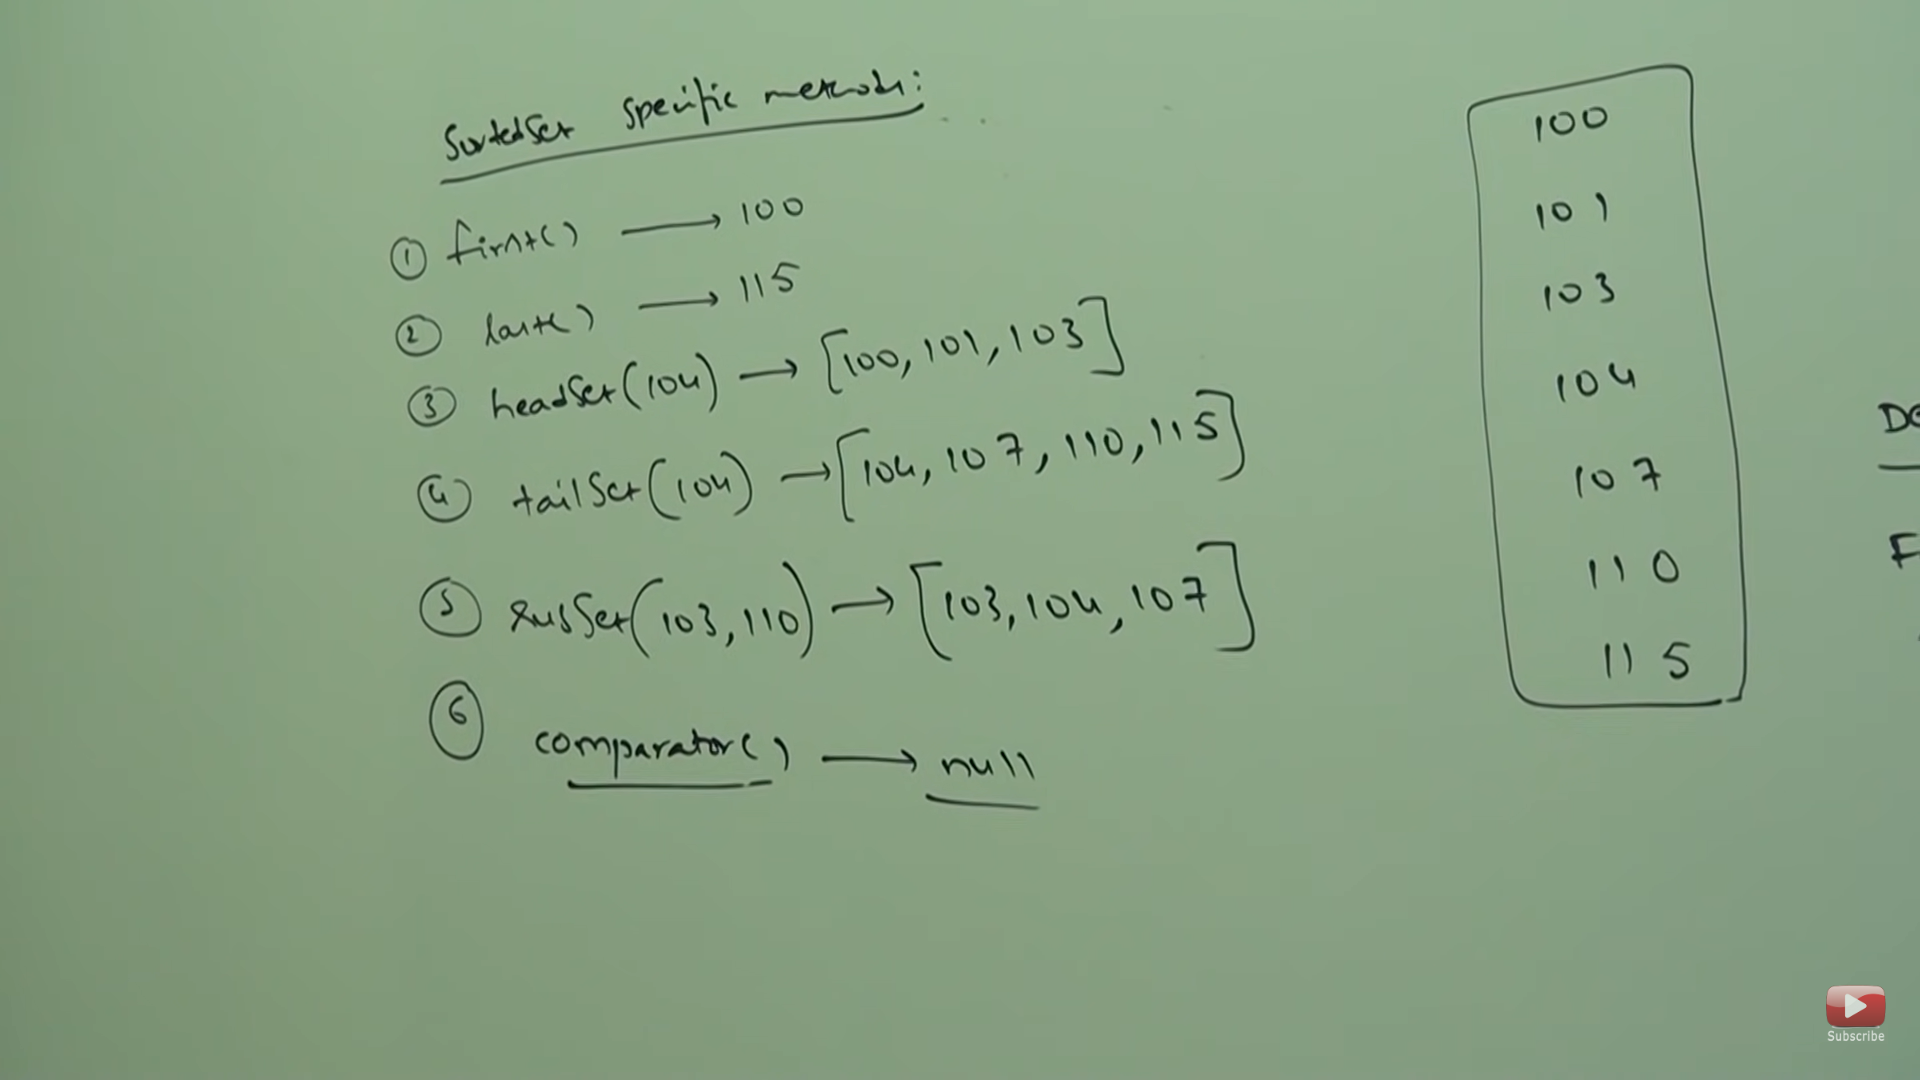 SortedSet specific methods:
① first() → 100
② last() → 115
③ headSet(104) → [100, 101, 103]
④ tailSet(104) → [104, 107, 110, 115]
⑤ subSet(103, 110) → [103, 104, 107]
⑥ comparator() → null
100
101
103
104
107
110
115
Subscribe